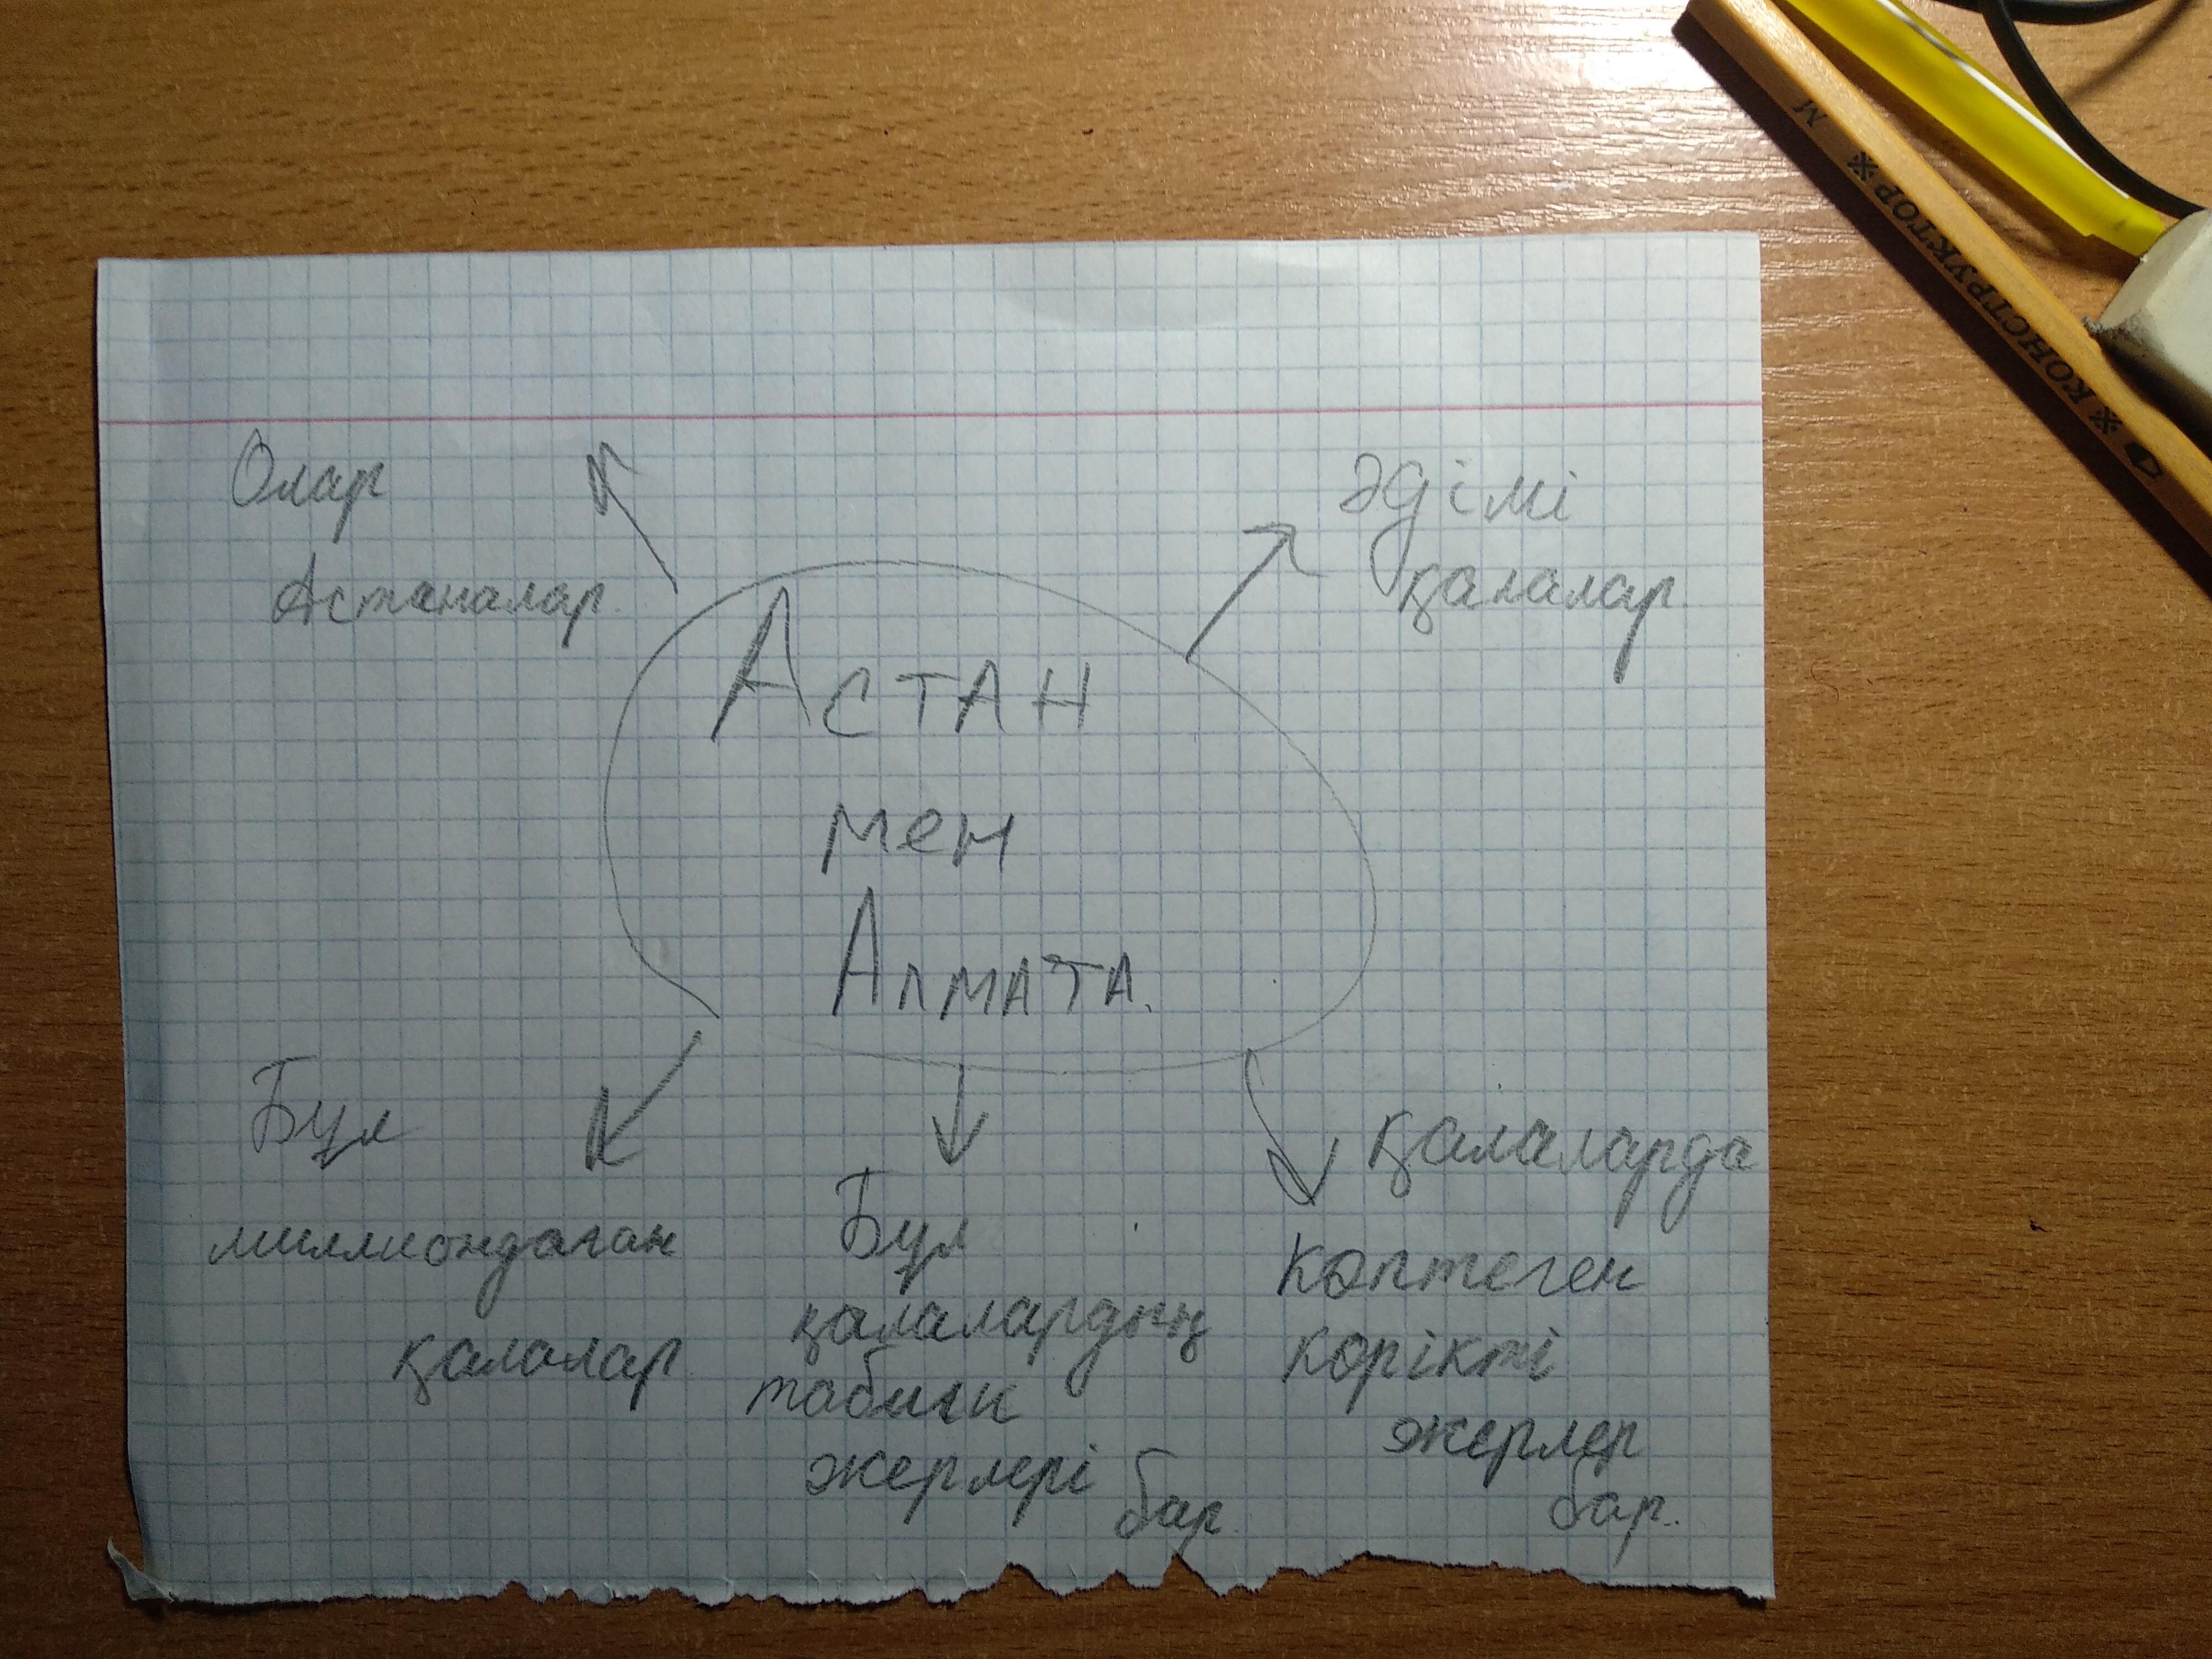 Олар
Астаналар.
Әдімі
қалалар.
Астан
мен
Алмата.
Бұл
миллиондаған
қалалар.
Бұл
қалалардың
табиғи
жерлері
бар.
қалаларда
көптеген
көрікті
жерлер
бар.
М ※ КОНСТРУКТОР ※